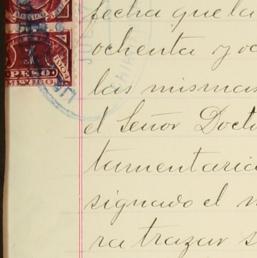 fecha que la
ochenta y oc
las mismas
el Señor Docto
tamentaria
signado el
ra trazar s
PESO